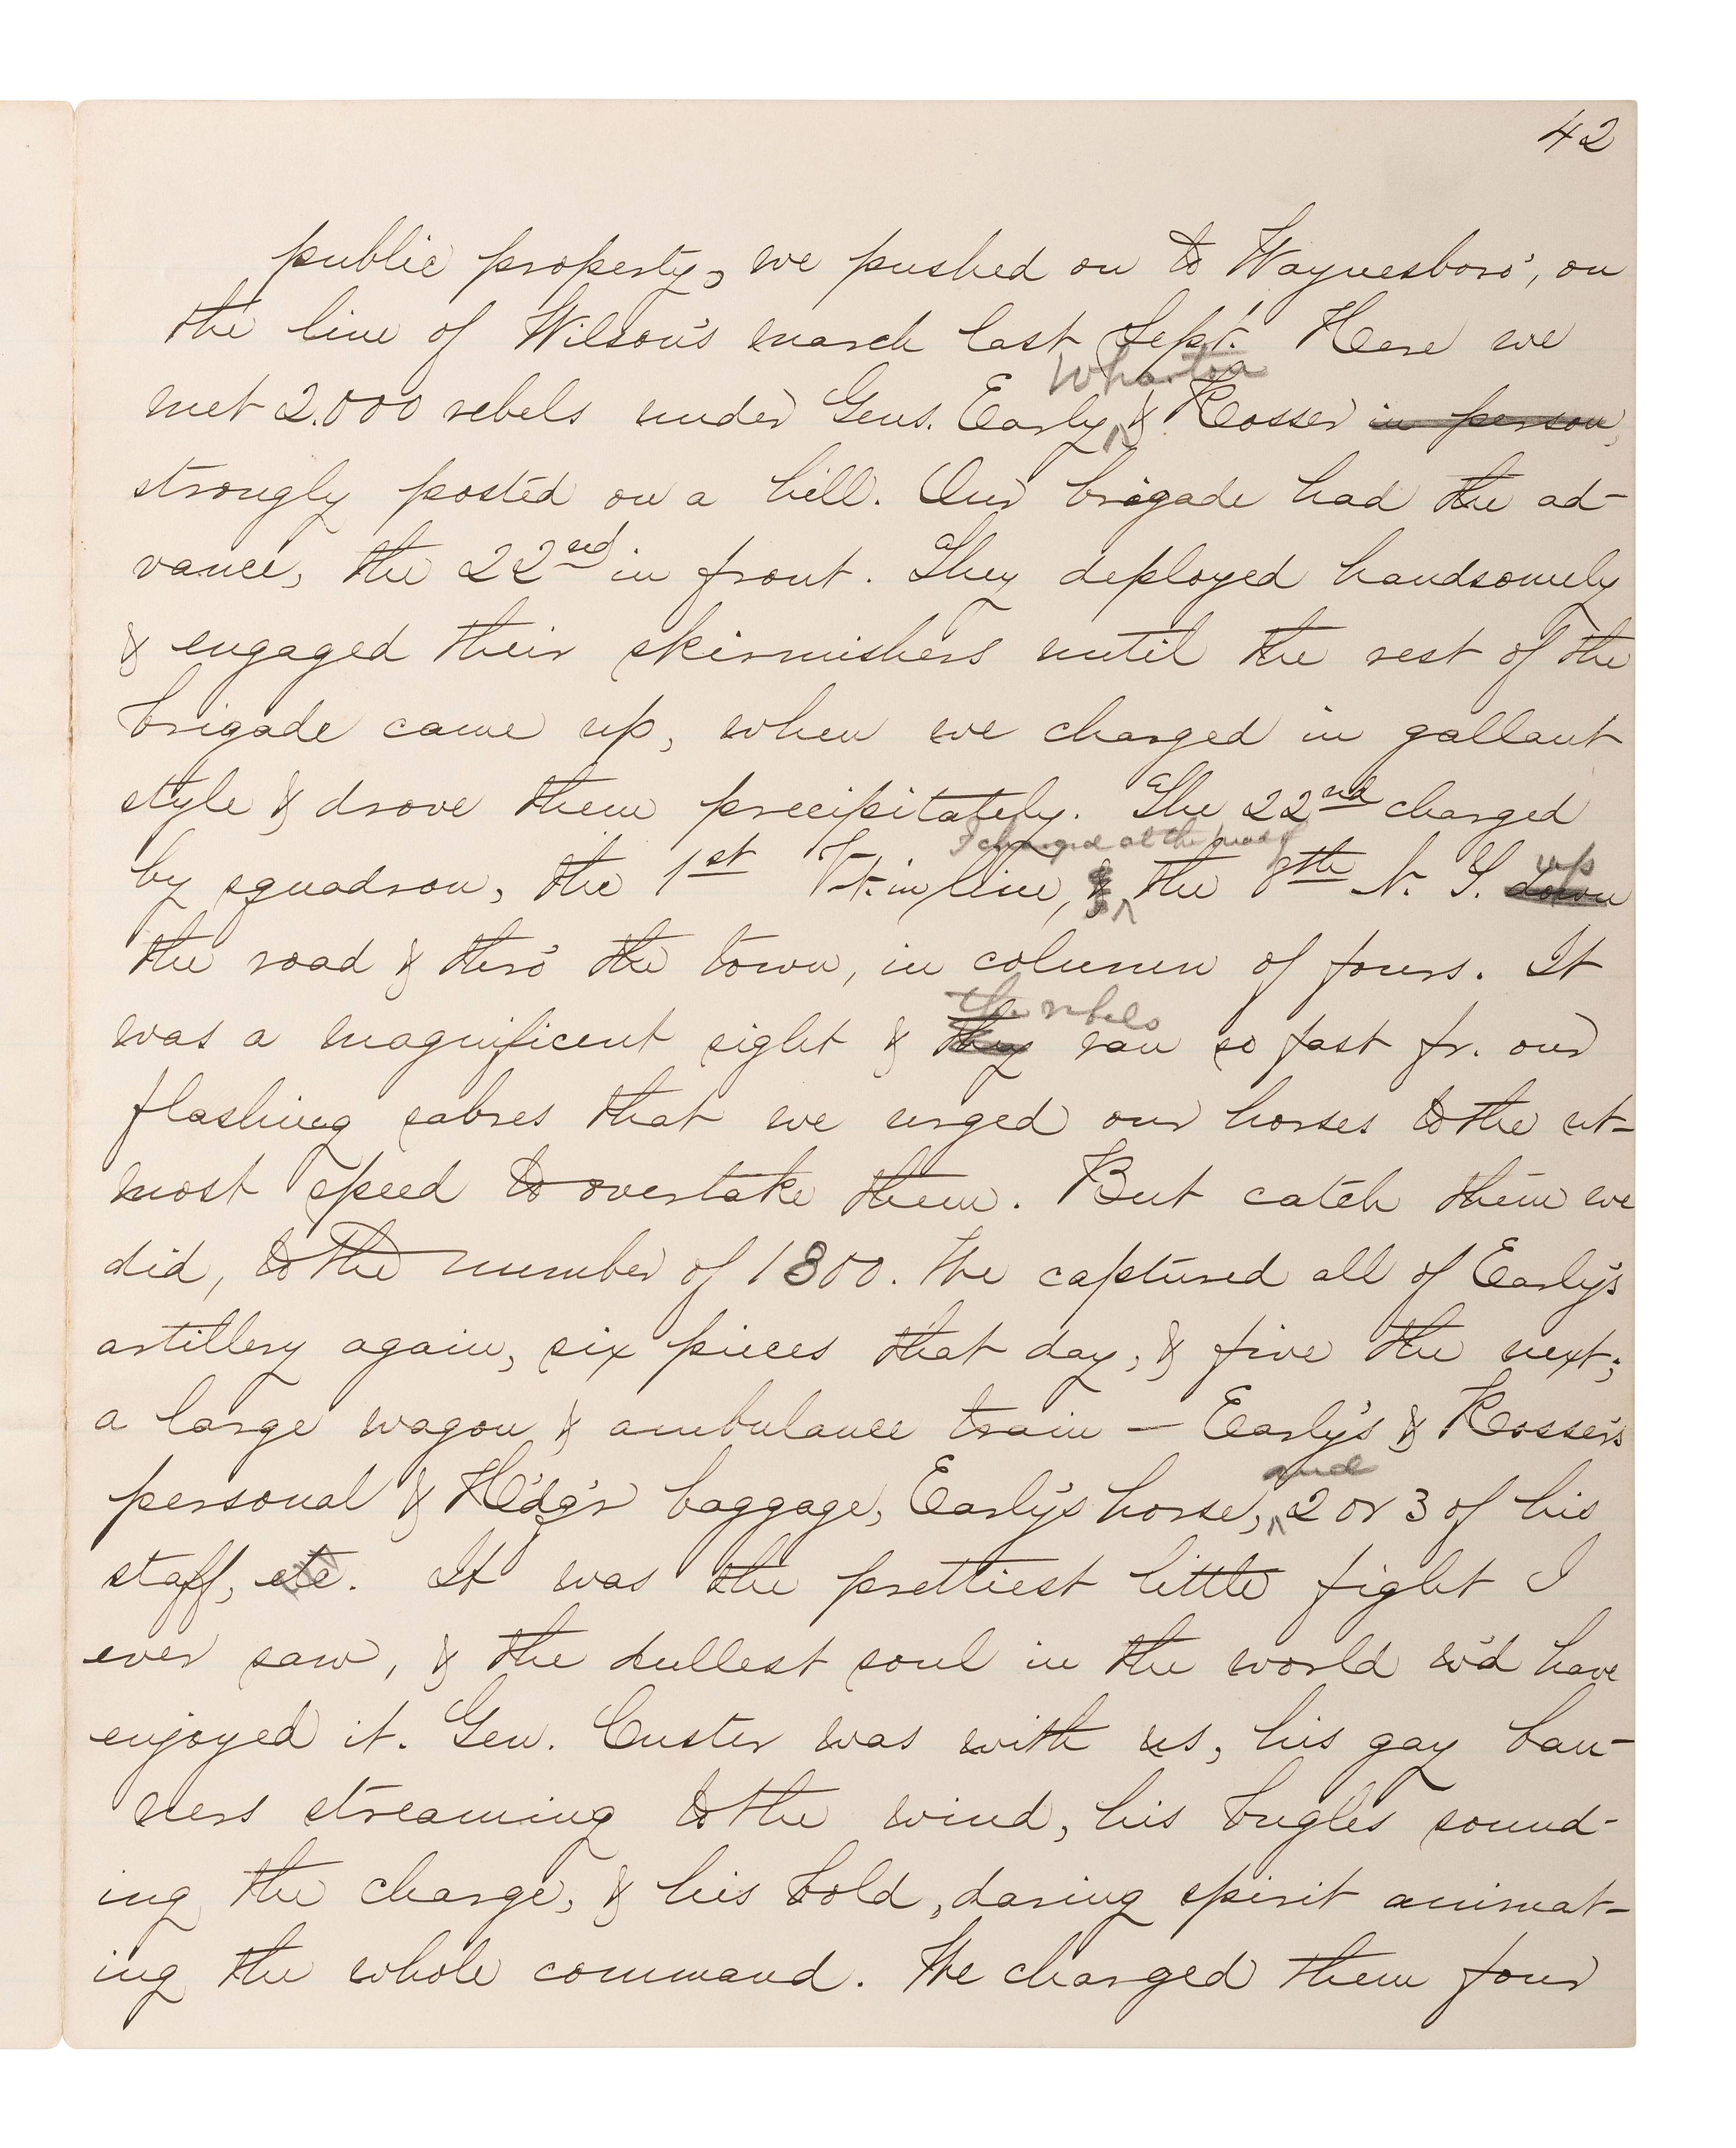 42
public property, we pushed on to Waynesboro', on
the line of Wilson's march last Sept. Here we
Wharton
met 2.000 rebels under Gens. Early & Rosser in person,
strongly posted on a hill. Our brigade had the ad-
vance, the 22nd in front. They deployed handsomely
& engaged their skirmishers until the rest of the
brigade came up, when we charged in gallant
style & drove them precipitately. The 22nd charged
I charged at the head of
up
by squadron, the 1st Vt. in line, & the 8th N. Y. down
the road & thro' the town, in column of fours. It
the rebels
was a magnificent sight & they ran so fast fr. our
flashing sabres that we urged our horses to the ut-
most speed to overtake them. But catch them we
did, to the number of 1800. We captured all of Early's
artillery again, six pieces that day, & five the next;
a large wagon & ambulance train — Early's & Rosser's
and
personal & H'dq'r baggage, Early's horse, 2 or 3 of his
staff, etc. It was the prettiest little fight I
ever saw, & the dullest soul in the world w'd have
enjoyed it. Gen. Custer was with us, his gay ban-
ners streaming to the wind, his bugles sound-
ing the charge, & his bold, daring spirit animat-
ing the whole command. We charged them four